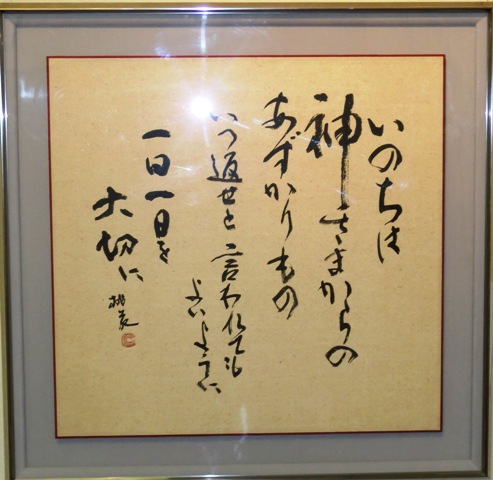 いのちは
神さまからの
あずかりもの
いつ返せと言われても
よいように
一日一日を
大切に